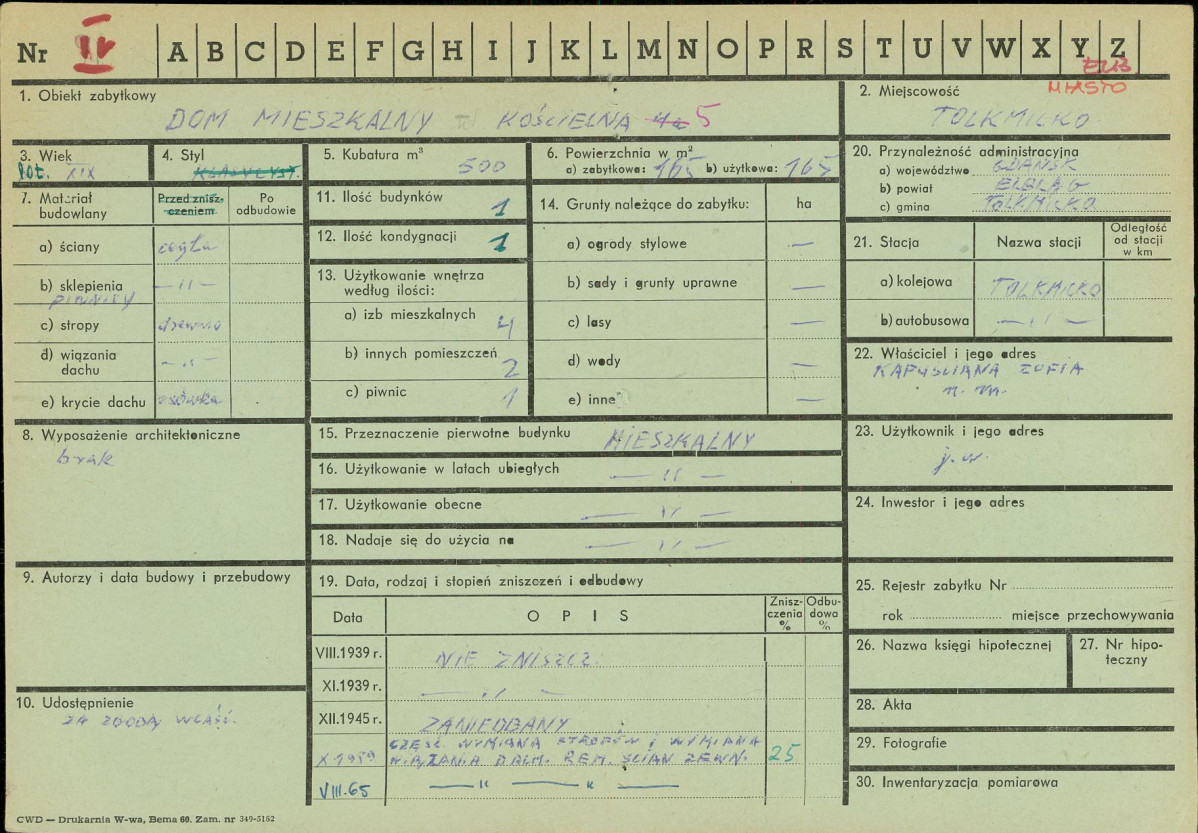 Nr IV A B C D E F G H I J K L M N O P R S T U V W X Y Z
ELB
MIASTO
1. Obiekt zabytkowy
DOM MIESZKALNY KOŚCIELNA 4a 5
2. Miejscowość
TOLKMICKO
3. Wiek
poł. XIX
4. Styl
KLASYCYST.
5. Kubatura m³
500
6. Powierzchnia w m²
a) zabytkowa: 165 b) użytkowa: 165
20. Przynależność administracyjna
a) województwo GDAŃSK
b) powiat ELBLĄG
c) gmina TOLKMICKO
7. Materiał budowlany
Przed znisz-
czeniem
Po
odbudowie
a) ściany cegła
b) sklepienia — 11 —
PIWNICY
c) stropy drewno
d) wiązania
dachu — 11 —
e) krycie dachu
8. Wyposażenie architektoniczne
brak
9. Autorzy i data budowy i przebudowy
10. Udostępnienie
ZA ZGODĄ WŁAŚC.
11. Ilość budynków 1
12. Ilość kondygnacji 1
13. Użytkowanie wnętrza
według ilości:
a) izb mieszkalnych 4
b) innych pomieszczeń 2
c) piwnic 1
14. Grunty należące do zabytku: ha
a) ogrody stylowe —
b) sady i grunty uprawne —
c) lasy —
d) wody —
e) inne —
15. Przeznaczenie pierwotne budynku MIESZKALNY
16. Użytkowanie w latach ubiegłych — 11 —
17. Użytkowanie obecne — 11 —
18. Nadaje się do użycia na — 11 —
19. Data, rodzaj i stopień zniszczeń i odbudowy
Data
OPIS
Znisz-
czenia
%
Odbu-
dowa
%
VIII.1939 r. NIE ZNISZCZ.
XI.1939 r. — 11 —
XII.1945 r. ZANIEDBANY
CZĘŚC. WYMIANA STROPÓW i WYMIANA
X 1959 WIĄZANIA DACH. REM. ŚCIAN ZEWN. 25
VIII.65 — 11 — 11 —
21. Stacja
Nazwa stacji
Odległość
od stacji
w km
a) kolejowa TOLKMICKO
b) autobusowa — 11 —
22. Właściciel i jego adres
KAPUŚCIANA ZOFIA
n. m.
23. Użytkownik i jego adres
j.w.
24. Inwestor i jego adres
25. Rejestr zabytku Nr
rok miejsce przechowywania
26. Nazwa księgi hipotecznej
27. Nr hipo-
teczny
28. Akta
29. Fotografie
30. Inwentaryzacja pomiarowa
CWD — Drukarnia W-wa, Bema 60. Zam. nr 349-5162